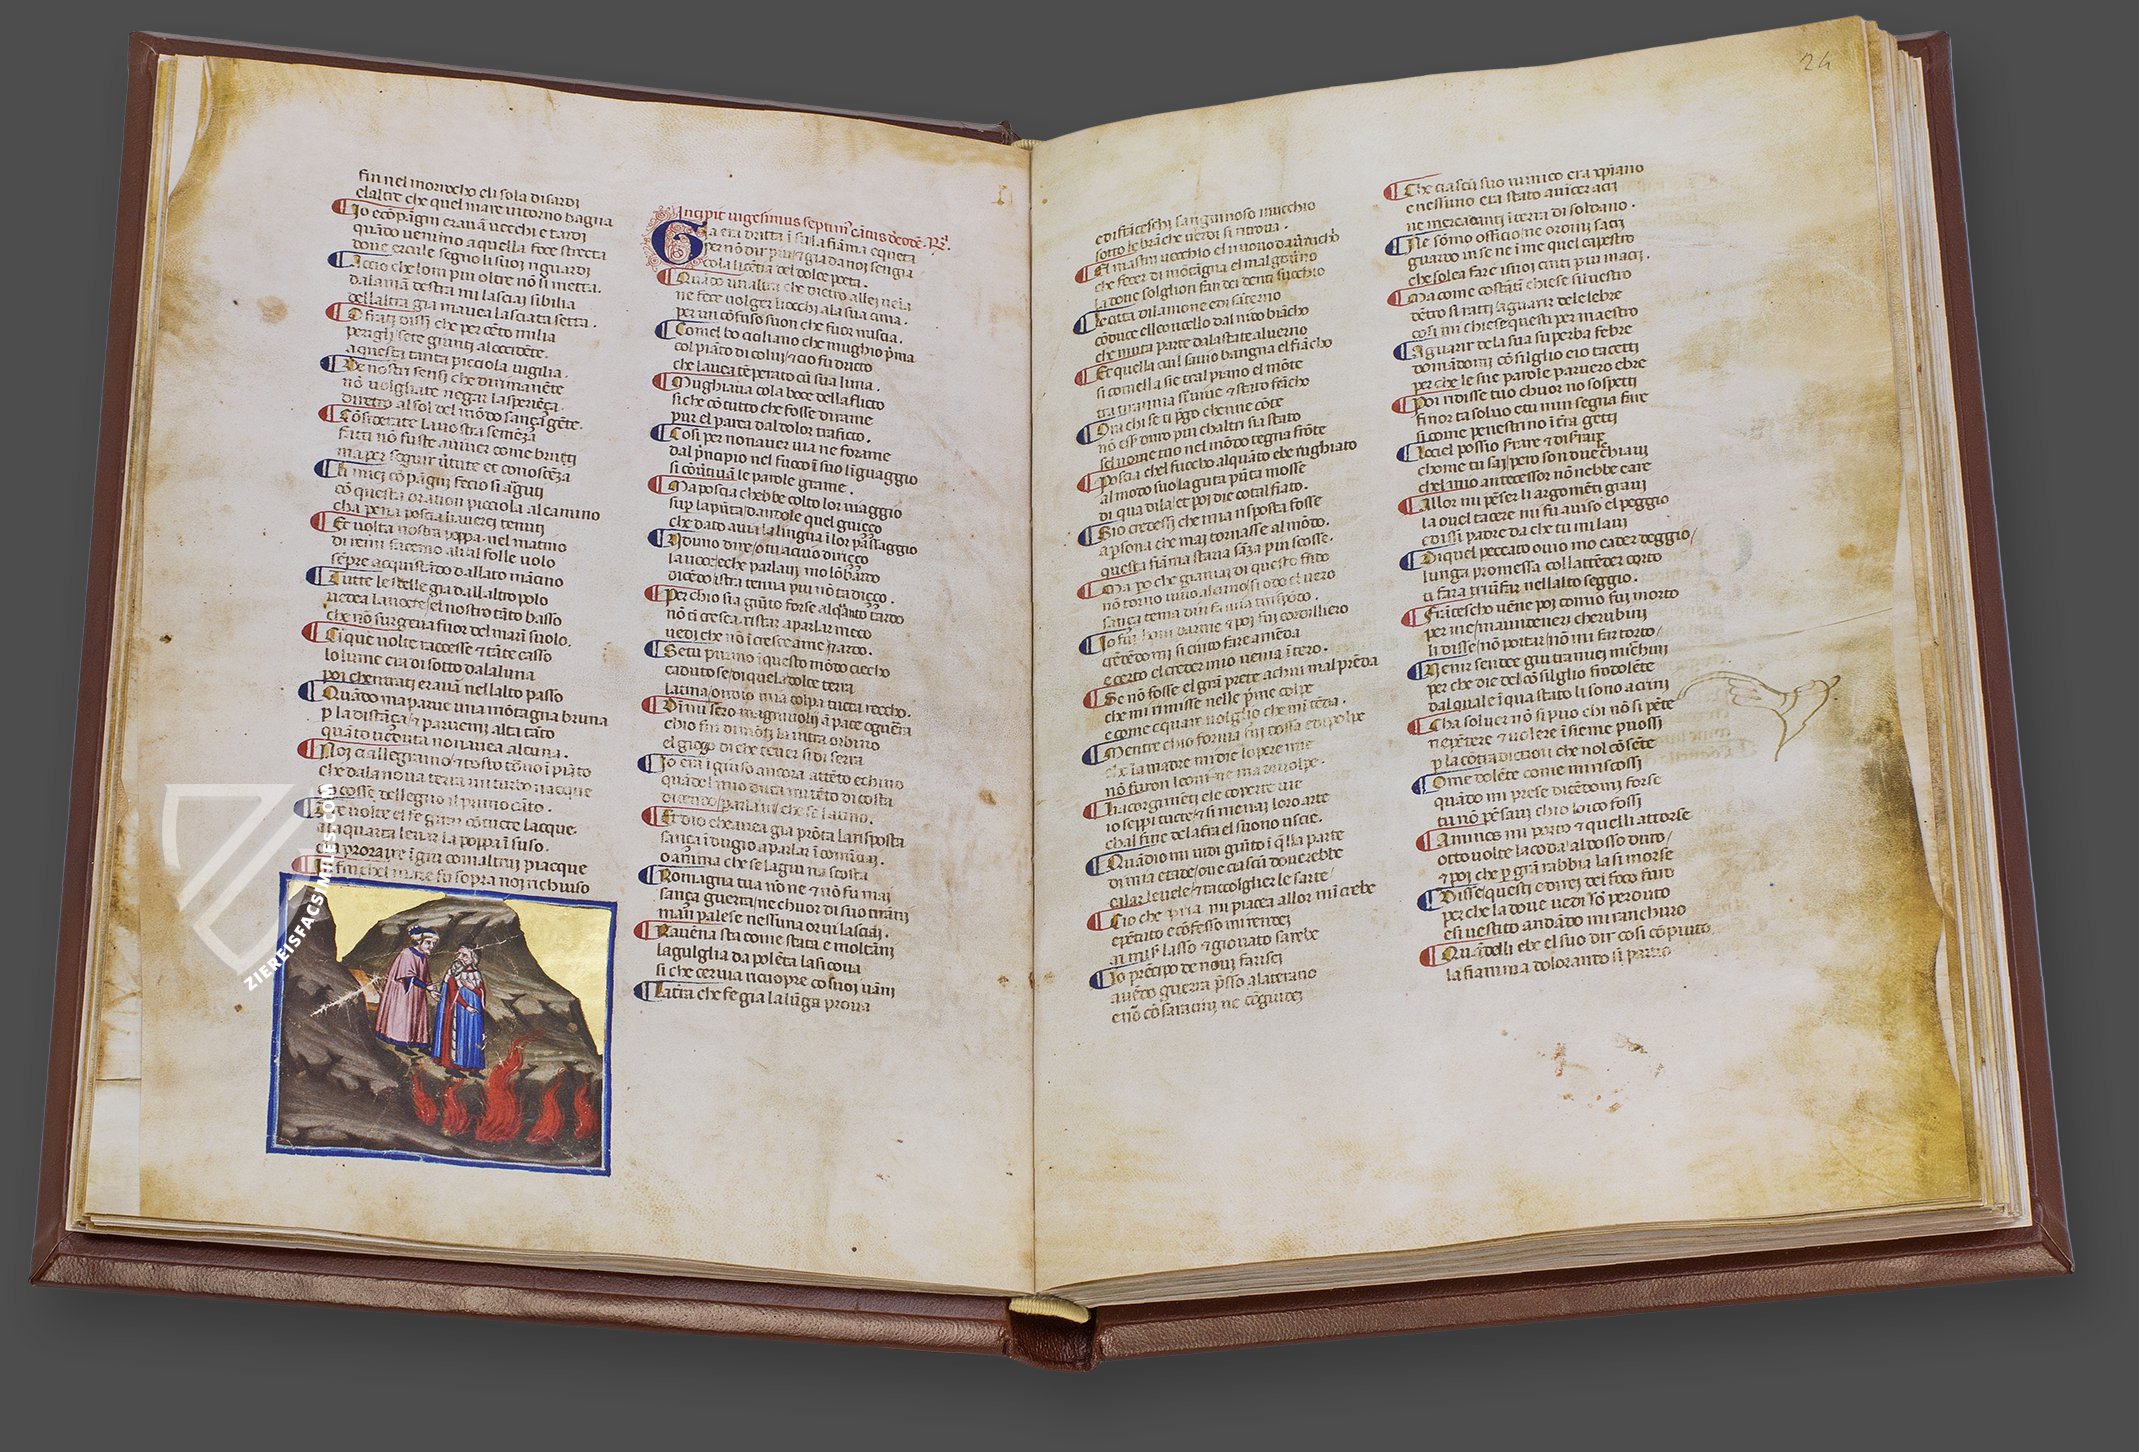 fin nel morrocho eli sola disardi
elaltre che quel mare intorno bagna
Io ecõpagni eravã vecchi e tardi
quãdo venimo aquella foce strecta
dove ercule segno li suoi riguardi
Accio che lom piu oltre nõ si metta.
dalamã destra mi lasciai sibilia
dellaltra gia mavea lasciata setta.
O frati dissi che per cẽto milia
perigli sete giunti aloccidẽte.
aquesta tanta picciola vigilia.
De nostri sensi che dirimanẽte
nõ vogliate negar lasperiẽça.
diretro al sol del mõdo sançã gẽte.
Cõsiderate lavostra semẽza
facti nõ fuste aviver come brutti
ma per seguir vtute et conoscẽza
Li miei cõpagni fecio si aguti
cõ questa oration picciola alcamino
cha pena poscia liaverei tenuti
Et volta nostra poppa nel matino
di remi facemo ali al folle volo
sẽpre acquistãdo dallato mãcino
Tutte le stelle gia dallaltro polo
vedea lanocte el nostro tãto basso
che nõ surgeva fuor del marĩ suolo.
Cĩque volte raccesse & tãte casso
lo lume era di sotto dalaluna
poi chentrati eravã nellalto passo
Quãdo maparve una mõtagna bruna
p la distãça & parvemi alta tãto
quãto veduta nonavea alcuna.
Noi ciallegramo & tosto tõno ĩ piãto
che dalanova terra un turbo nacque
e cosse dellegno il primo cãto.
Tre volte el fe girar cõtucte lacque.
ala quarta levar la poppa ĩ suso.
ela prora ire ĩ giu comaltrui piacque
In fin chel mare fu sopra noi richiuso
Incipit vigesimus septimus cãtus
Gia era dritta ĩ su la fiãma equeta
per nõ dir piu & gia da noi sengia
cola licẽtia del dolce poeta.
Quãdo unaltra che dietro allei venia
ne fece volger liocchi ala sua cima.
per un cõfuso suon che fuor nuscia.
Comel bo ciciliano che mughio pma
col piãto di colui & cio fu dricto
che lavea tẽperato cũ sua lima.
Mughiava cola boce dellaflicto
si che cõ tutto che fosse dirame
pur el parea dal dolor traficto.
Cosi per nonaver via ne forame
dal principio nel fuoco ĩ suo lĩguaggio
si cõvtivã le parole grame.
Ma poscia chebbe colto lor viaggio
sup lapũta dandole quel guiçço
che dato avia lalingua ĩ lor passaggio
Udimo dire o tu acuio diriçço
la voce che parlavi mo lõbardo
dicẽdo istra tenva piu nõ tadiçço.
Per chio sia giũto forse alquãto tardo
nõ ti cresca ristar aparlar meco
vedi che nõ ĩcresce ame & ardo.
Se tu pur mo ĩ questo mõdo ciecho
caduto se di quela dolce terra
latina ondio mia colpa tucta reccho.
Dimi sero magnavoli ã pace o guerra
chio fui di mõti la intra orbino
el giogo di che tever si diserra
Io era ĩ giuso ancora attẽto echino
quãdel mio duca mi tẽto di costa
dicendo parla tu che se latino.
Et dio chavea gia prõta la risposta
sança ĩdugio a parlar ĩ comĩciai.
o anima che se la giu nascosta
Romagna tua nõ ne & nõ fu mai
sança guerra ne chuor di suo tirãni
ma ĩ palese nessuna or vi lasciai.
Ravẽna sta come stata e moltãni
laguglia da polẽta la si cova
si che cervia ricuopre co suoi vãni
La tra che fe gia la lũga prova
24
e di frãceschi sanguinoso mucchio
sotto le brãche verdi si ritrova.
El mastin vecchio el nuovo da vrucchio
che fecer di mõtagna el mal governo
la dove soglion fan dei denti succhio
Le citta di lamone e di sãterno
cõduce el leoncello dal nido biãcho
che muta parte dala state al verno
Et quella cui l savio bangna el fiãcho
si comella sie tral piano el mõte
tra tirannia si vive & stato frãcho
Ora chi se ti pgo che ne cõte
nõ esser duro piu chaltri sia stato
sel nome tuo nel mõdo tegna frõte
Poscia chel fuocho alquãto che rughiato
al modo suo laguta pũta mosse
di qua di la et poi die cotal fiato.
Sio credessi che mia risposta fosse
apsona che mai tornasse al mõdo.
questa fiãma staria sãza piu scosse.
Ma po che giamai di questo fõdo
nõ torno vivo alcuno si odo el vero
sança tema dinfamia trispõdo.
Io fui hom darme & poi fui cordilliero
credẽdomi si cinto fare amẽda
e certo el creder mio venia ĩtero.
Se nõ fosse el grã prete achui mal prẽda
che mi rimisse nelle pme colpe
e come e quare voglio che mĩtẽda.
Mentre chio forma fui dossa e di polpe
che la madre mi die lopere mie
nõ furon leonine ma di volpe.
Li acorgimẽti ele coperte vie
io seppi tucte & si menai loro arte
chal fine dela terra el suono uscie.
Quãdio mi vidi giũto ĩ qlla parte
di mia etade ove ciascũ doverebbe
calar le vele & raccoglier le sarte
Cio che pria mi piacea allor mĩcrebbe
e pẽtuto e cõfesso mi rendei
ai miser lasso & giovato sarebe
Lo prĩcipo de novi farisei
avẽdo guerra psso a laterano
e nõ cõ saracini ne cõ giudei
Che ciascũ suo nimico era xpiano
e nessuno era stato avincer acri
ne mercadanti ĩ terra di soldano.
Ne sõmo officio ne ordini sacri
guardo in se ne ĩ me quel capestro
che solea fare i suoi cinti piu macri.
Ma come costãtĩ chiese silvestro
dẽtro siratti aguarir dele lebre
cosi mi chiese questi per maestro
Aguarir de la sua superba febre
domãdomi cõsiglio e io tacetti
per che le sue parole parvero ebre
Poi ridisse tuo chuor no sospetti
finor tasolvo e tu minsegna fare
si come penestrino ĩ terra getti
Lo ciel possio serrare & disserrare
chome tu sai pero son due chiavi
chel mio antecessor nõ nebbe care
Allor mi pĩser li argomẽti gravi
la ovel tacere mi fu aviso el peggio
e dissi padre da che tu mi lavi
Di quel peccato ovio mo cader deggio
lunga promessa coll attẽder corto
ti fara triũfar nellalto seggio.
Frãcescho vẽne poi comio fui morto
per me ma vn de neri cherubini
li disse nõ portar nõ mi far torto
Venir sende giu tra miei mĩchini
per che die del cõsiglio frodolẽte
dal quale ĩ qua stato li sono acrini
Cha solver nõ si puo chi nõ si pẽte
ne pẽtere & volere ĩsieme puossi
p la cõtradiction che nol cõsẽte
Ome dolẽte come mi riscossi
quãdo mi prese dicẽdomi forse
tu nõ pẽsavi chio loico fossi
A minos mi porto & quelli attorse
otto volte la coda al dosso duro
& poi che p grã rabbia la si morse
Disse questi e direi del foco furo
per che la dove vedi sõ perduto
e si vestito andãdo mi ranchuro
Quãdelli ebe el suo dir cosi cõpiuto
la fiamma dolorando si partio
ZIEREISFACSIMILES.COM